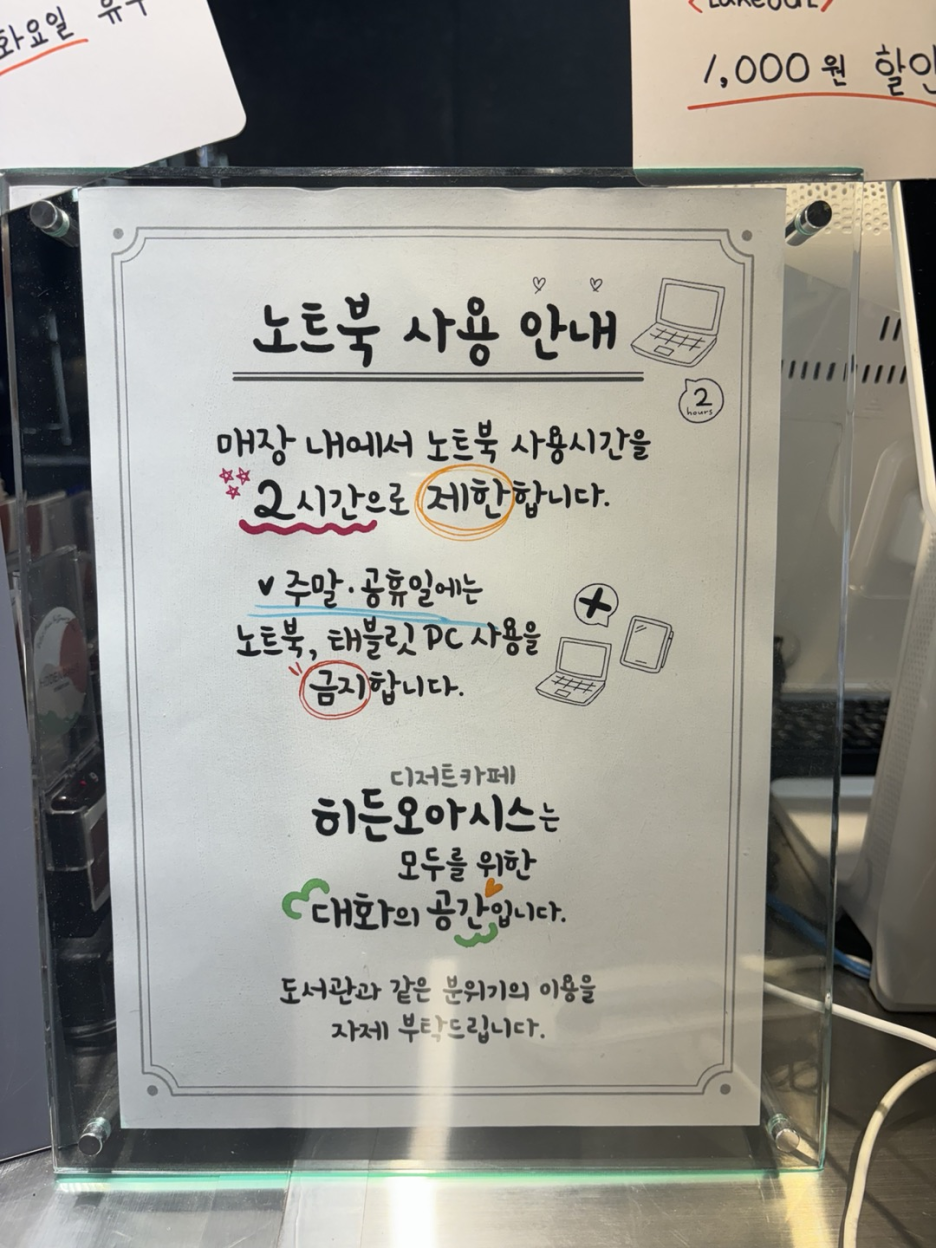 화요일
<Takeout>
1,000원 할인
노트북 사용 안내
2
hours
매장 내에서 노트북 사용시간을
2시간으로 제한합니다.
✓ 주말·공휴일에는
노트북, 태블릿 PC 사용을
금지합니다.
디저트카페
히든오아시스는
모두를 위한
대화의 공간입니다.
도서관과 같은 분위기의 이용을
자제 부탁드립니다.